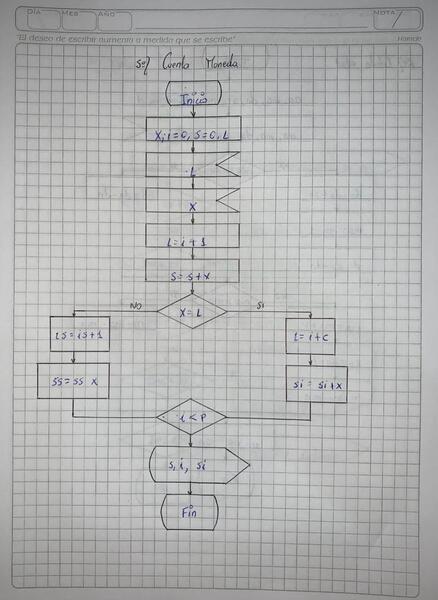 DÍA MES AÑO NOTA
"El deseo de escribir aumenta a medida que se escribe"
Cuenta Moneda
Inicio
X, i=0, S=0, L
L
X
L=i+1
S=s+x
X=L
NO
Si
is=is+1
i=i+c
ss=ss x
si=si+x
i<P
s, i, si
Fin